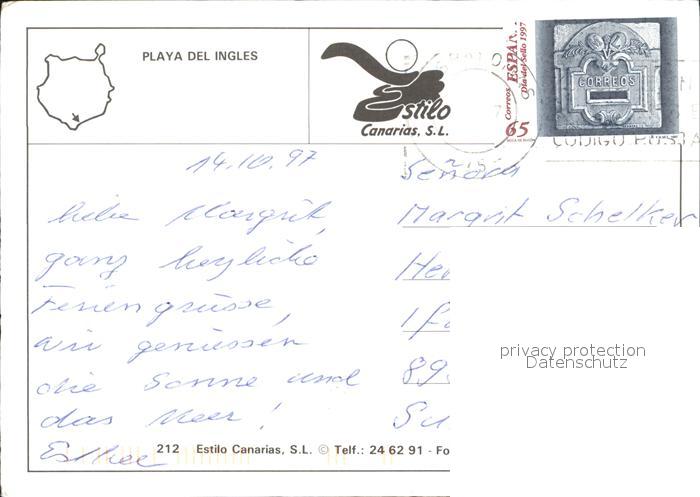 PLAYA DEL INGLES
Estilo
Canarias, S.L.
Correos ESPAÑA
Día del Sello 1997
65
CORREOS
CODIGO POSTA
14.10.97
Liebe Margrit,
ganz herzliche
Feriengrüsse,
wir geniessen
die Sonne und
das Meer!
Esther
Señora
Margrit Schelker
privacy protection
Datenschutz
89
212 Estilo Canarias, S.L. © Telf.: 24 62 91 - Fo